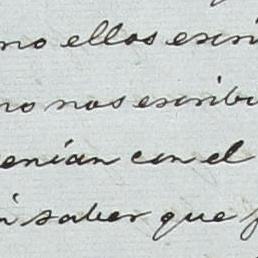 no ellos escri
no nos escribi
enían con el
saber que